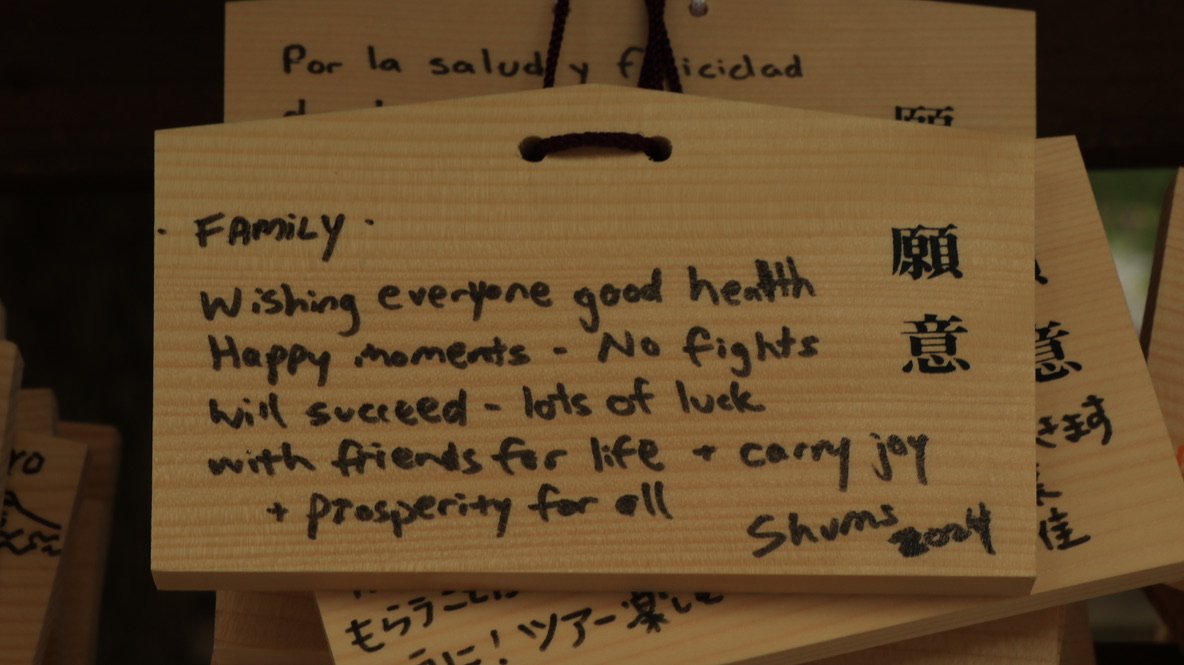 Por la salud y felicidad
· FAMILY ·
Wishing everyone good health
Happy moments - No fights
will succeed - lots of luck
with friends for life + carry joy
+ prosperity for all
Shums 2004
願意
意
きます
佳
もらうことは
に！ツアー楽しを